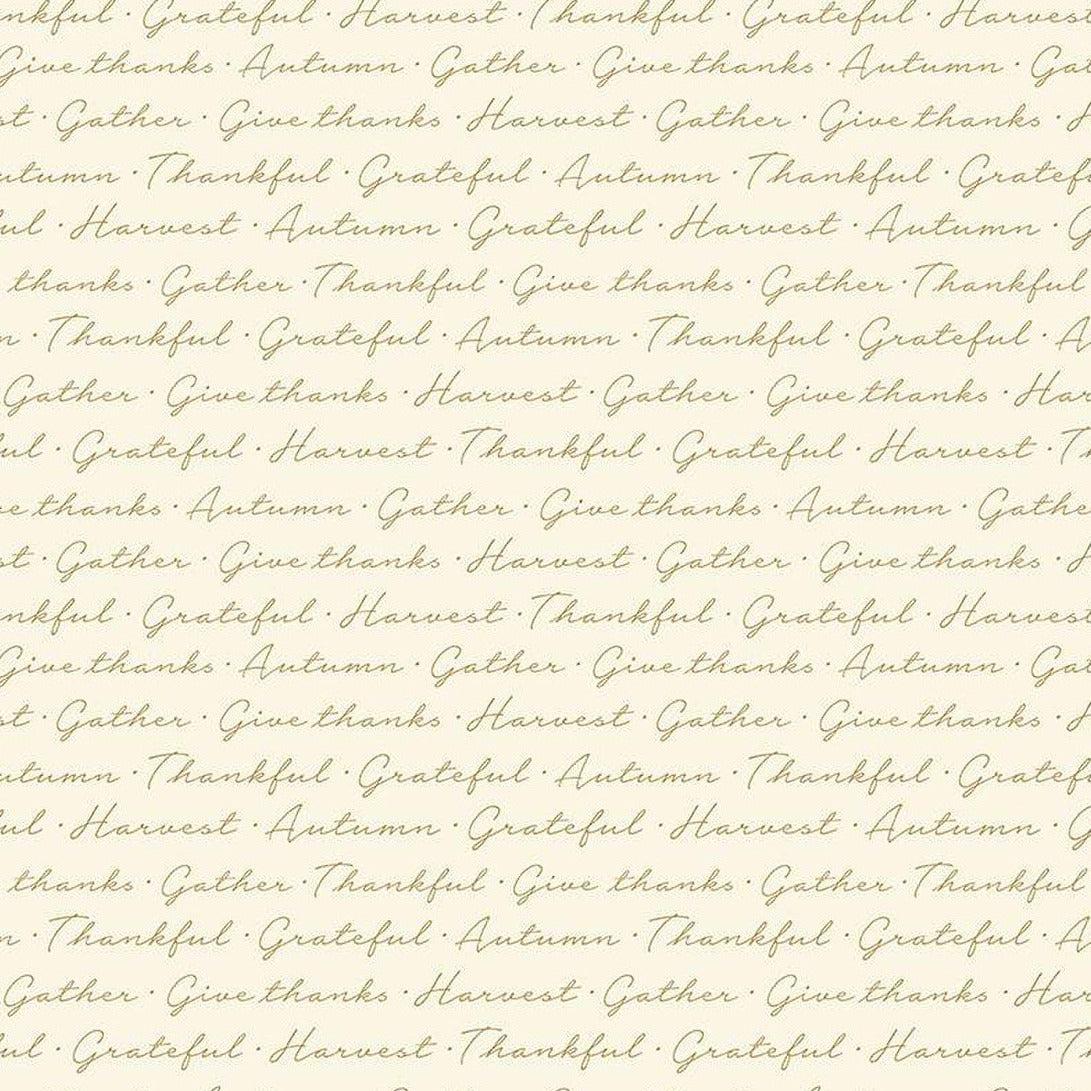 nkful · Grateful · Harvest · Thankful · Grateful · Harvest
Give thanks · Autumn · Gather · Give thanks · Autumn · Gat
st · Gather · Give thanks · Harvest · Gather · Give thanks · H
utumn · Thankful · Grateful · Autumn · Thankful · Gratef
ul · Harvest · Autumn · Grateful · Harvest · Autumn · G
thanks · Gather · Thankful · Give thanks · Gather · Thankful
n · Thankful · Grateful · Autumn · Thankful · Grateful · A
Gather · Give thanks · Harvest · Gather · Give thanks · Har
ul · Grateful · Harvest · Thankful · Grateful · Harvest · Th
e thanks · Autumn · Gather · Give thanks · Autumn · Gathe
st · Gather · Give thanks · Harvest · Gather · Give thanks · H
nkful · Grateful · Harvest · Thankful · Grateful · Harvest
Give thanks · Autumn · Gather · Give thanks · Autumn · Gat
st · Gather · Give thanks · Harvest · Gather · Give thanks · H
utumn · Thankful · Grateful · Autumn · Thankful · Gratef
ul · Harvest · Autumn · Grateful · Harvest · Autumn · G
thanks · Gather · Thankful · Give thanks · Gather · Thankful
n · Thankful · Grateful · Autumn · Thankful · Grateful · A
Gather · Give thanks · Harvest · Gather · Give thanks · Har
ul · Grateful · Harvest · Thankful · Grateful · Harvest · Th